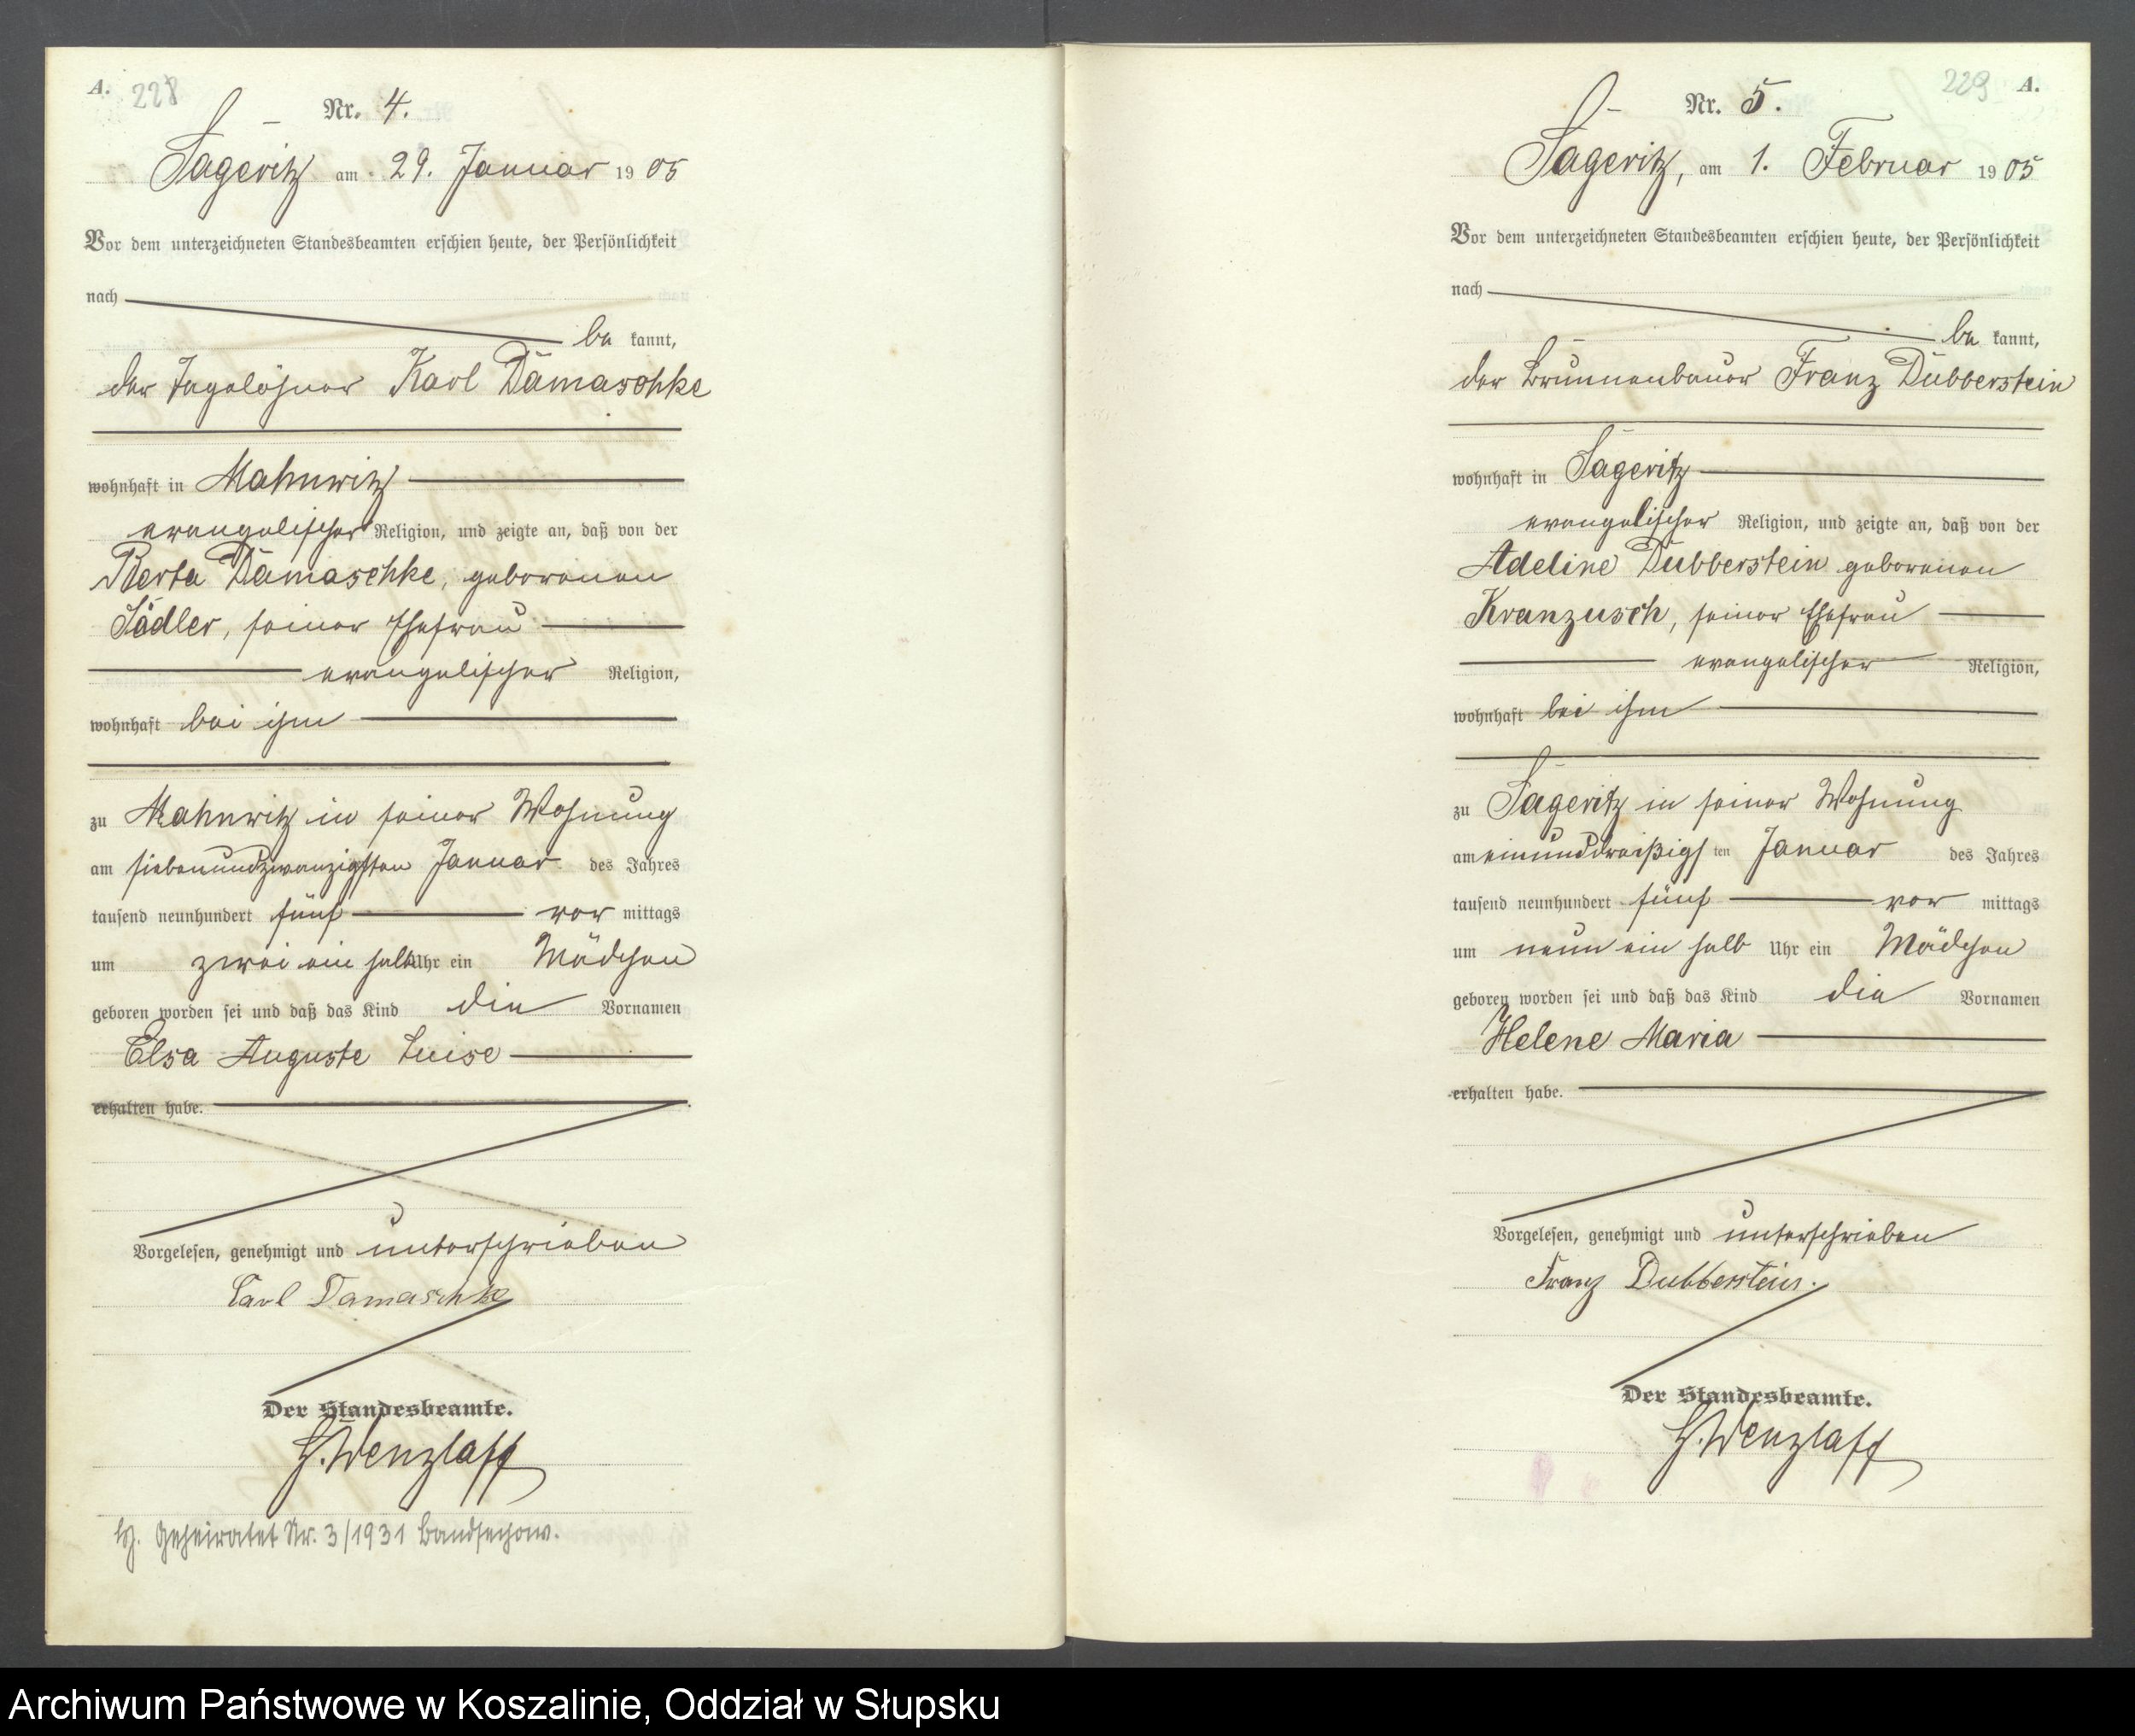 A. 228
Nr. 4.
Sageritz am 29. Januar 1905
Vor dem unterzeichneten Standesbeamten erschien heute, der Persönlichkeit
nach
be kannt,
der Tagelöhner Karl Damaschke
wohnhaft in Mahnwitz
evangelischer Religion, und zeigte an, daß von der
Berta Damaschke, geborenen
Sädler, seiner Ehefrau
evangelischer Religion,
wohnhaft bei ihm
zu Mahnwitz in seiner Wohnung
am siebenundzwanzigsten Januar des Jahres
tausend neunhundert fünf vor mittags
um zwei ein halb Uhr ein Mädchen
geboren worden sei und daß das Kind die Vornamen
Elsa Auguste Luise
erhalten habe.
Vorgelesen, genehmigt und unterschrieben
Carl Damaschke
Der Standesbeamte.
H. Wenzlaff
Geheiratet Nr. 3/1931 Bandsechow.
229 A.
Nr. 5.
Sageritz, am 1. Februar 1905
Vor dem unterzeichneten Standesbeamten erschien heute, der Persönlichkeit
nach
be kannt,
der Brunnenbauer Franz Dubberstein
wohnhaft in Sageritz
evangelischer Religion, und zeigte an, daß von der
Adeline Dubberstein geborenen
Kranzusch, seiner Ehefrau
evangelischer Religion,
wohnhaft bei ihm
zu Sageritz in seiner Wohnung
am einunddreißigs ten Januar des Jahres
tausend neunhundert fünf vor mittags
um neun ein halb Uhr ein Mädchen
geboren worden sei und daß das Kind die Vornamen
Helene Maria
erhalten habe.
Vorgelesen, genehmigt und unterschrieben
Franz Dubberstein.
Der Standesbeamte.
H. Wenzlaff
Archiwum Państwowe w Koszalinie, Oddział w Słupsku